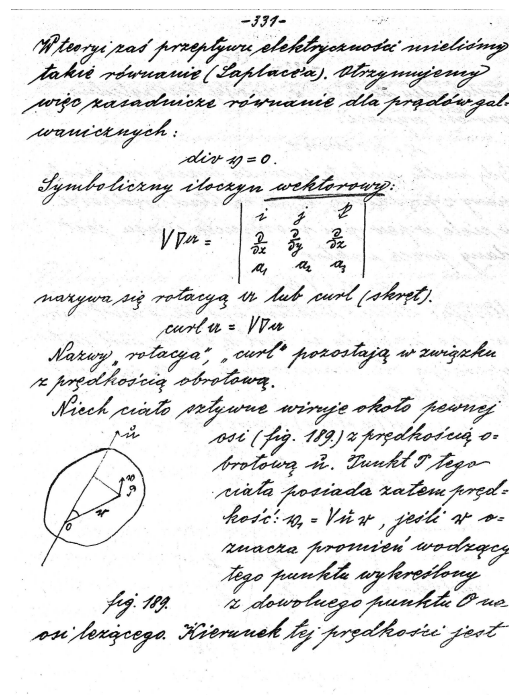 -331-
W teoryi zaś przepływu elektryczności mieliśmy
takie równanie (Laplace'a). Otrzymujemy
więc zasadnicze równanie dla prądów gal-
wanicznych:
div v = 0.
Symboliczny iloczyn wektorowy:
V∇a = | i j k |
| ∂/∂x ∂/∂y ∂/∂x |
| a₁ a₂ a₃ |
nazywa się rotacyą a lub curl (skręt).
curl a = V∇a
Nazwy „rotacya", „curl" pozostają w związku
z prędkością obrotową.
Niech ciało sztywne wiruje około pewnej
osi (fig. 189.) z prędkością o-
brotową u. Punkt P tego
ciała posiada zatem pręd-
kość: v₁ = Vur, jeśli r o-
znacza promień wodzący
tego punktu wykreślony
z dowolnego punktu O na
osi leżącego. Kierunek tej prędkości jest
u
v
P
r
O
fig. 189.